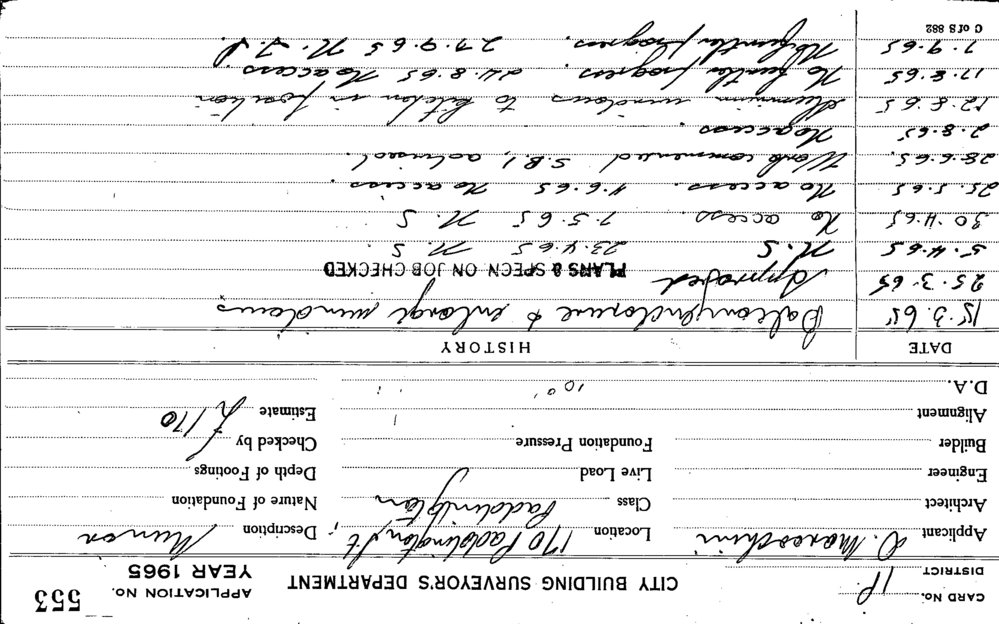 CARD NO. 1P. CITY BUILDING SURVEYOR'S DEPARTMENT APPLICATION NO. 553
DISTRICT YEAR 1965
Applicant Location 170 Paddington St Description Minor
Architect Class Paddington Nature of Foundation
Engineer Live Load Depth of Footings
Builder Foundation Pressure Checked by
Alignment Estimate £170
D.A. 10' 0"
DATE HISTORY
15.3.65 Balcony enclosure & enlarge windows
25.3.65 Approved PLANS & SPECN ON JOB CHECKED
5.4.65 N.S 23.4.65 N.S.
30.4.65 No access. 7.5.65 N.S
25.5.65 No access. 4.6.65 No access.
28.6.65. Work commenced S.B.1, advised.
2.8.65 No access.
12.8.65 Aluminium windows to kitchen in position
17.8.65 No further progress. 24.8.65 No access.
7.9.65 No further progress. 27.9.65
C of S 882